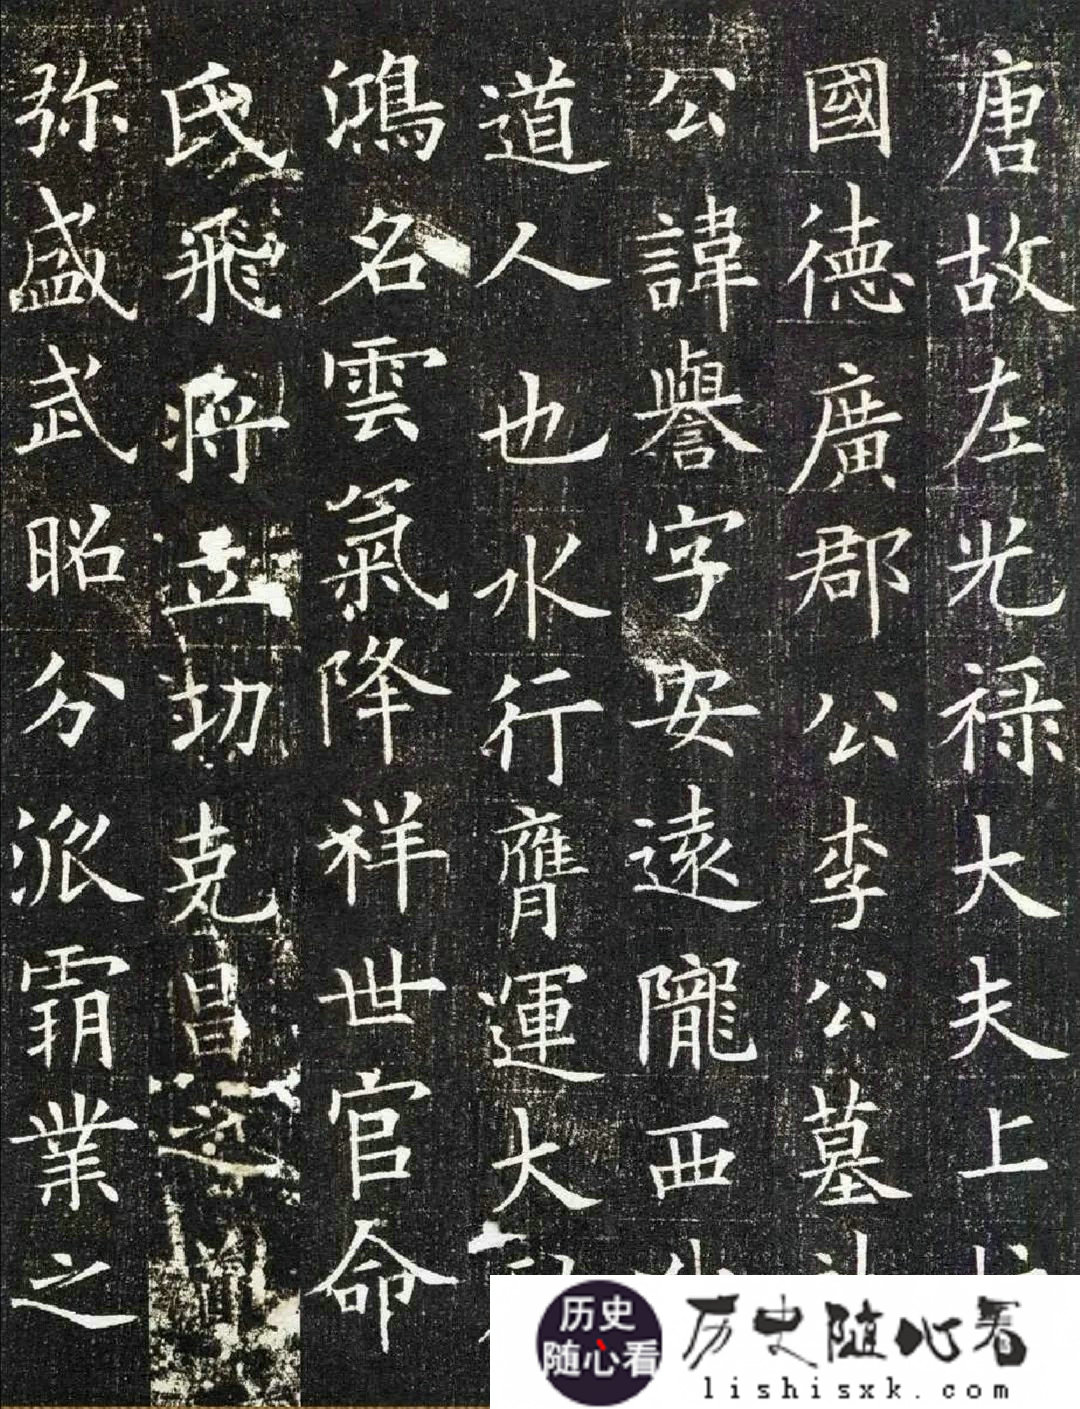 唐故左光禄大夫上
國德廣郡公李公墓
公諱譽字安遠隴西
道人也水行膺運大
鴻名雲氣降祥世官命
氏飛將立功克昌
弥盛武昭分派霸業之
历史
随心看
历史随心看
lishisxk.com